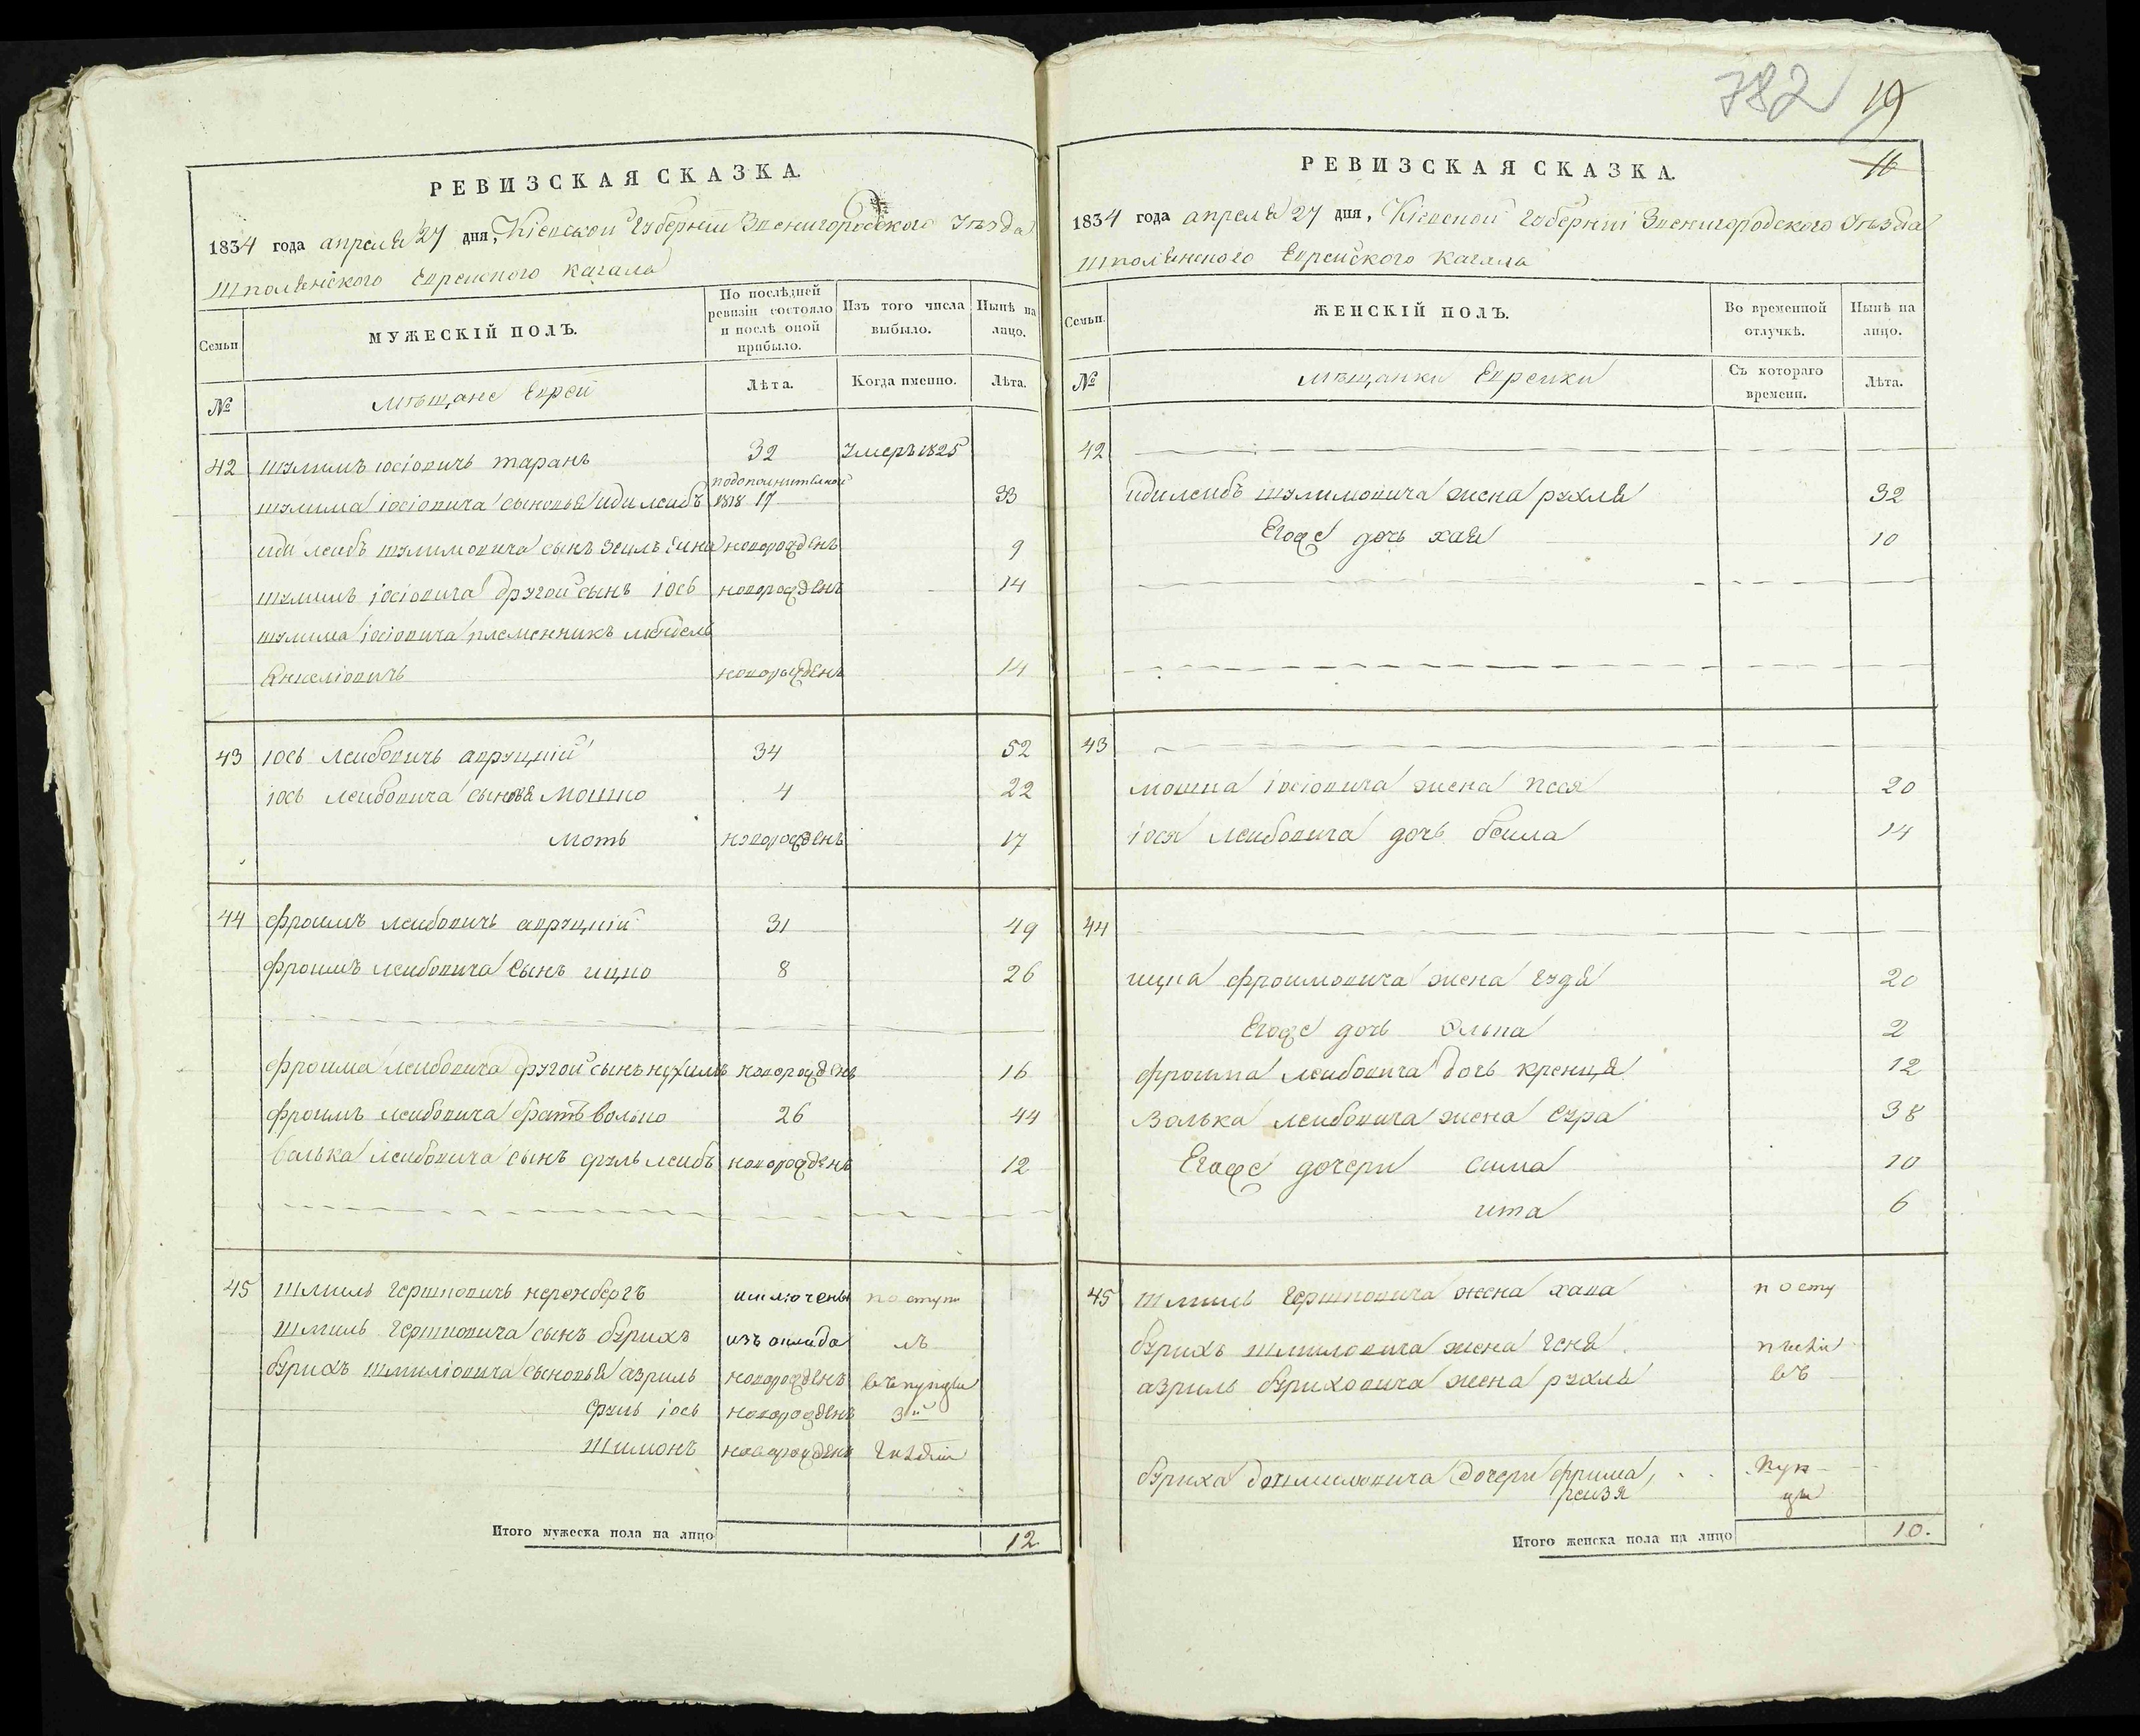 782 19
16
РЕВИЗСКАЯ СКАЗКА.
1834 года апреля 27 дня, Кіевской Губерніи Звенигородского Уезда
Шполянского Еврейского Кагала
Семьи
МУЖЕСКІЙ ПОЛЪ.
По послѣдней ревизіи состояло и послѣ оной прибыло.
Изъ того числа выбыло.
Нынѣ на лицо.
№
мѣщане Евреи
Лѣта.
Когда именно.
Лѣта.
42 шулимъ іосіовичь таранъ 32 Умеръ 1825
подополнителной
шулима іосіовича сыновья иди леибъ 1818 17 33
иди леибъ шулимовича сынъ новорожденъ 9
шулимъ іосіовича другой сынъ іось новорожденъ 14
шулима іосіовича племенникъ мендель
Янкеліовичъ новорожденъ 14
43 іось леибовичь авруцкій 34 52
іось леибовича сыновя мошко 4 22
моть новорожденъ 17
44 фроимъ леибовичь авруцкій 31 49
фроимъ леибовича сынъ ицко 8 26
фроима леибовича другой сынъ нухимъ новорожденъ 16
фроимъ леибовича братъ волько 26 44
волька леибовича сынъ сруль леибъ новорожденъ 12
45 шмиль гершковичь неренбергъ изключены поступи
шмиль гершковича сынъ бурихъ изъ оклада лъ
бурихъ шмиліовича сыновья азриль новорожденъ въ купцы
сруль іось новорожденъ 3й
шимонъ новорожденъ Гилдіи
Итого мужеска пола на лицо 12.
РЕВИЗСКАЯ СКАЗКА.
1834 года апреля 27 дня, Кіевской Губерніи Звенигородского Уезда
Шполянского Еврейского Кагала
Семьи.
ЖЕНСКІЙ ПОЛЪ.
Во временной отлучкѣ.
Нынѣ на лицо.
№
мѣщанки Еврейки
Съ котораго времени.
Лѣта.
42
иди леибъ шулимовича жена рухля 32
Егоже дочь хая 10
43
мошка іосіовича жена песя 20
іося леибовича дочь беила 14
44
ицка фроимовича жена гудя 20
Егоже дочь элька 2
фроима леибовича дочь креиця 12
Волька леибовича жена сура 38
Егоже дочери сима 10
ита 6
45 шмиль гершковича жена хава посту
бурихъ шмиловича жена геня
азриль буриховича жена рухль въ
буриха дочери фрима, куп
реизя цы
Итого женска пола на лицо 10.